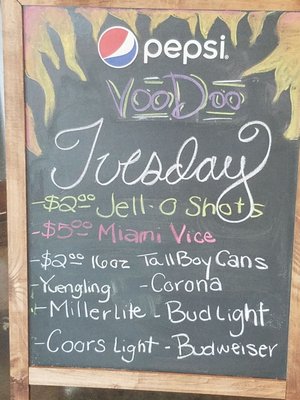 pepsi.
VooDoo
Tuesday
-$2.00 Jell-O Shots
-$5.00 Miami Vice
-$2.00 16oz TallBoy Cans
-Yuengling -Corona
-Miller lite -Bud Light
-Coors Light -Budweiser